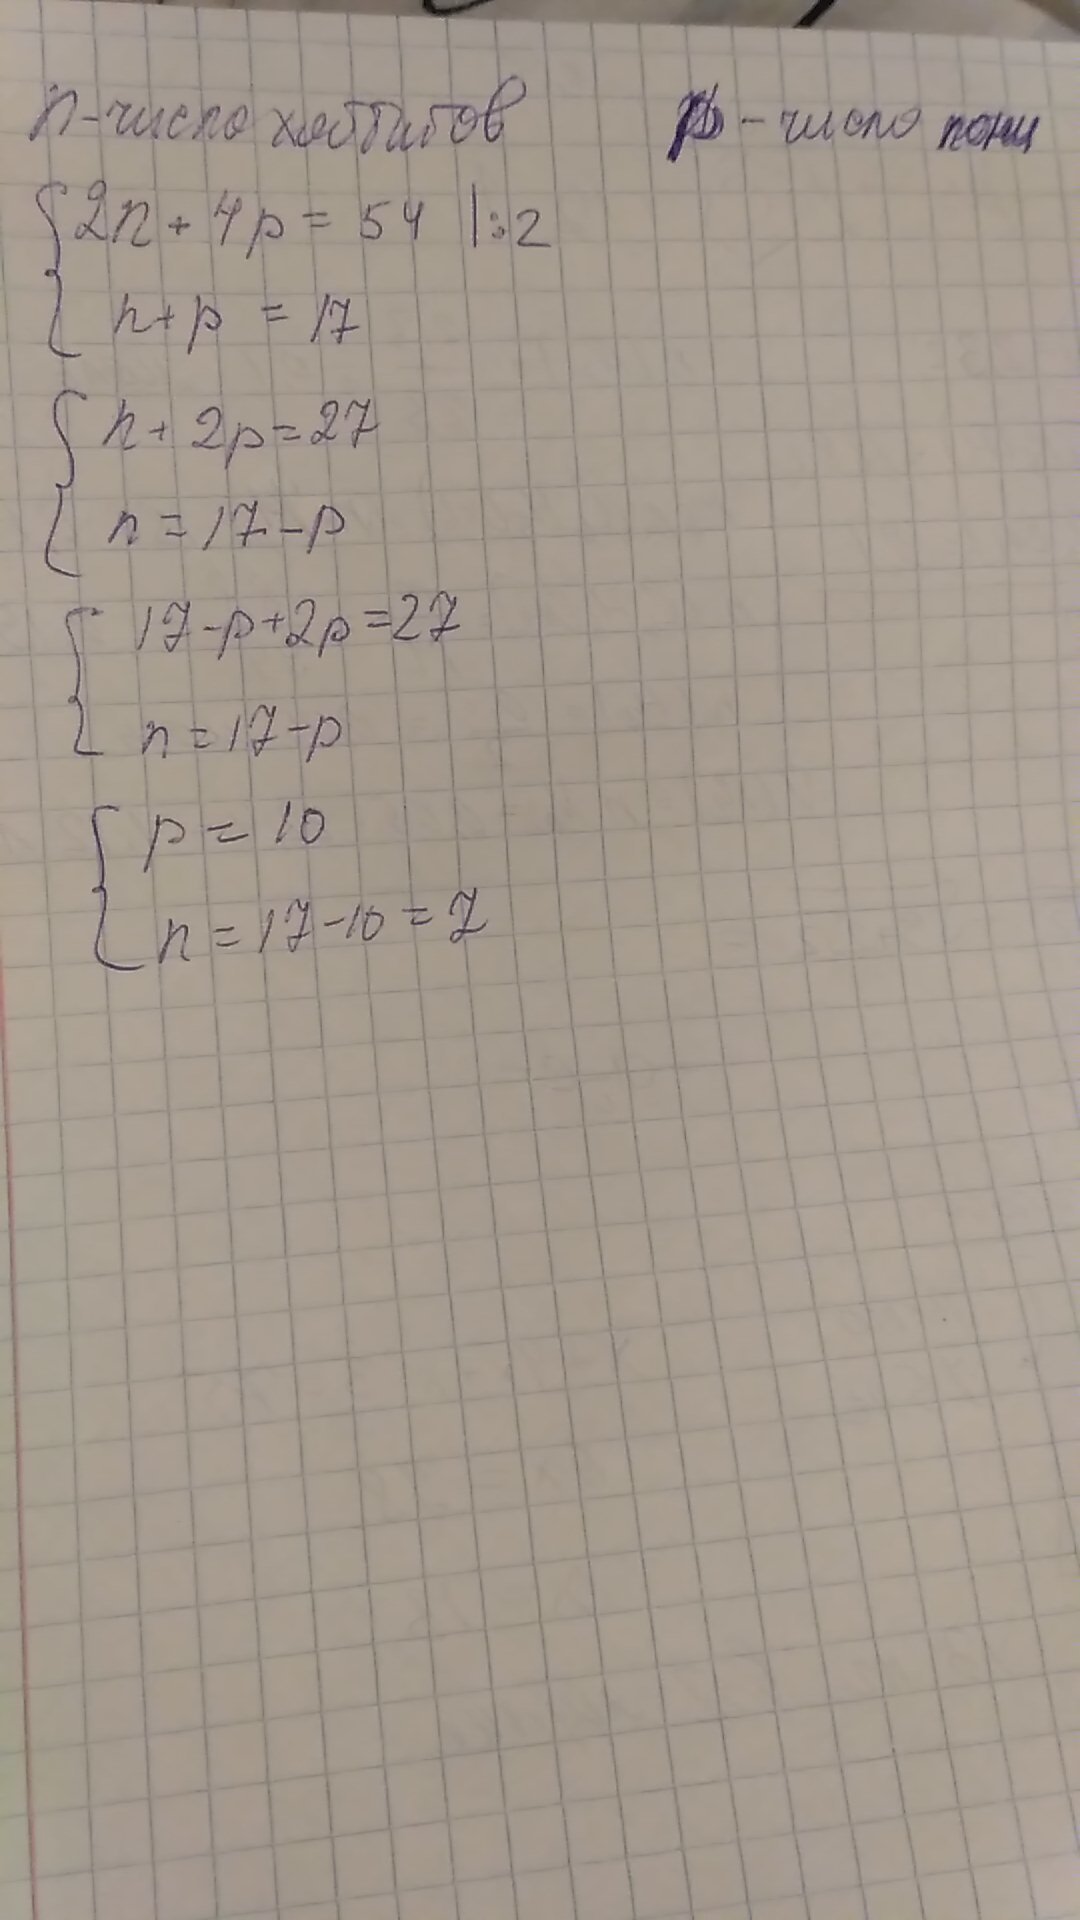 n - число хоббитов p - число пони
2n + 4p = 54 |:2
n + p = 17
n + 2p = 27
n = 17 - p
17 - p + 2p = 27
n = 17 - p
p = 10
n = 17 - 10 = 7